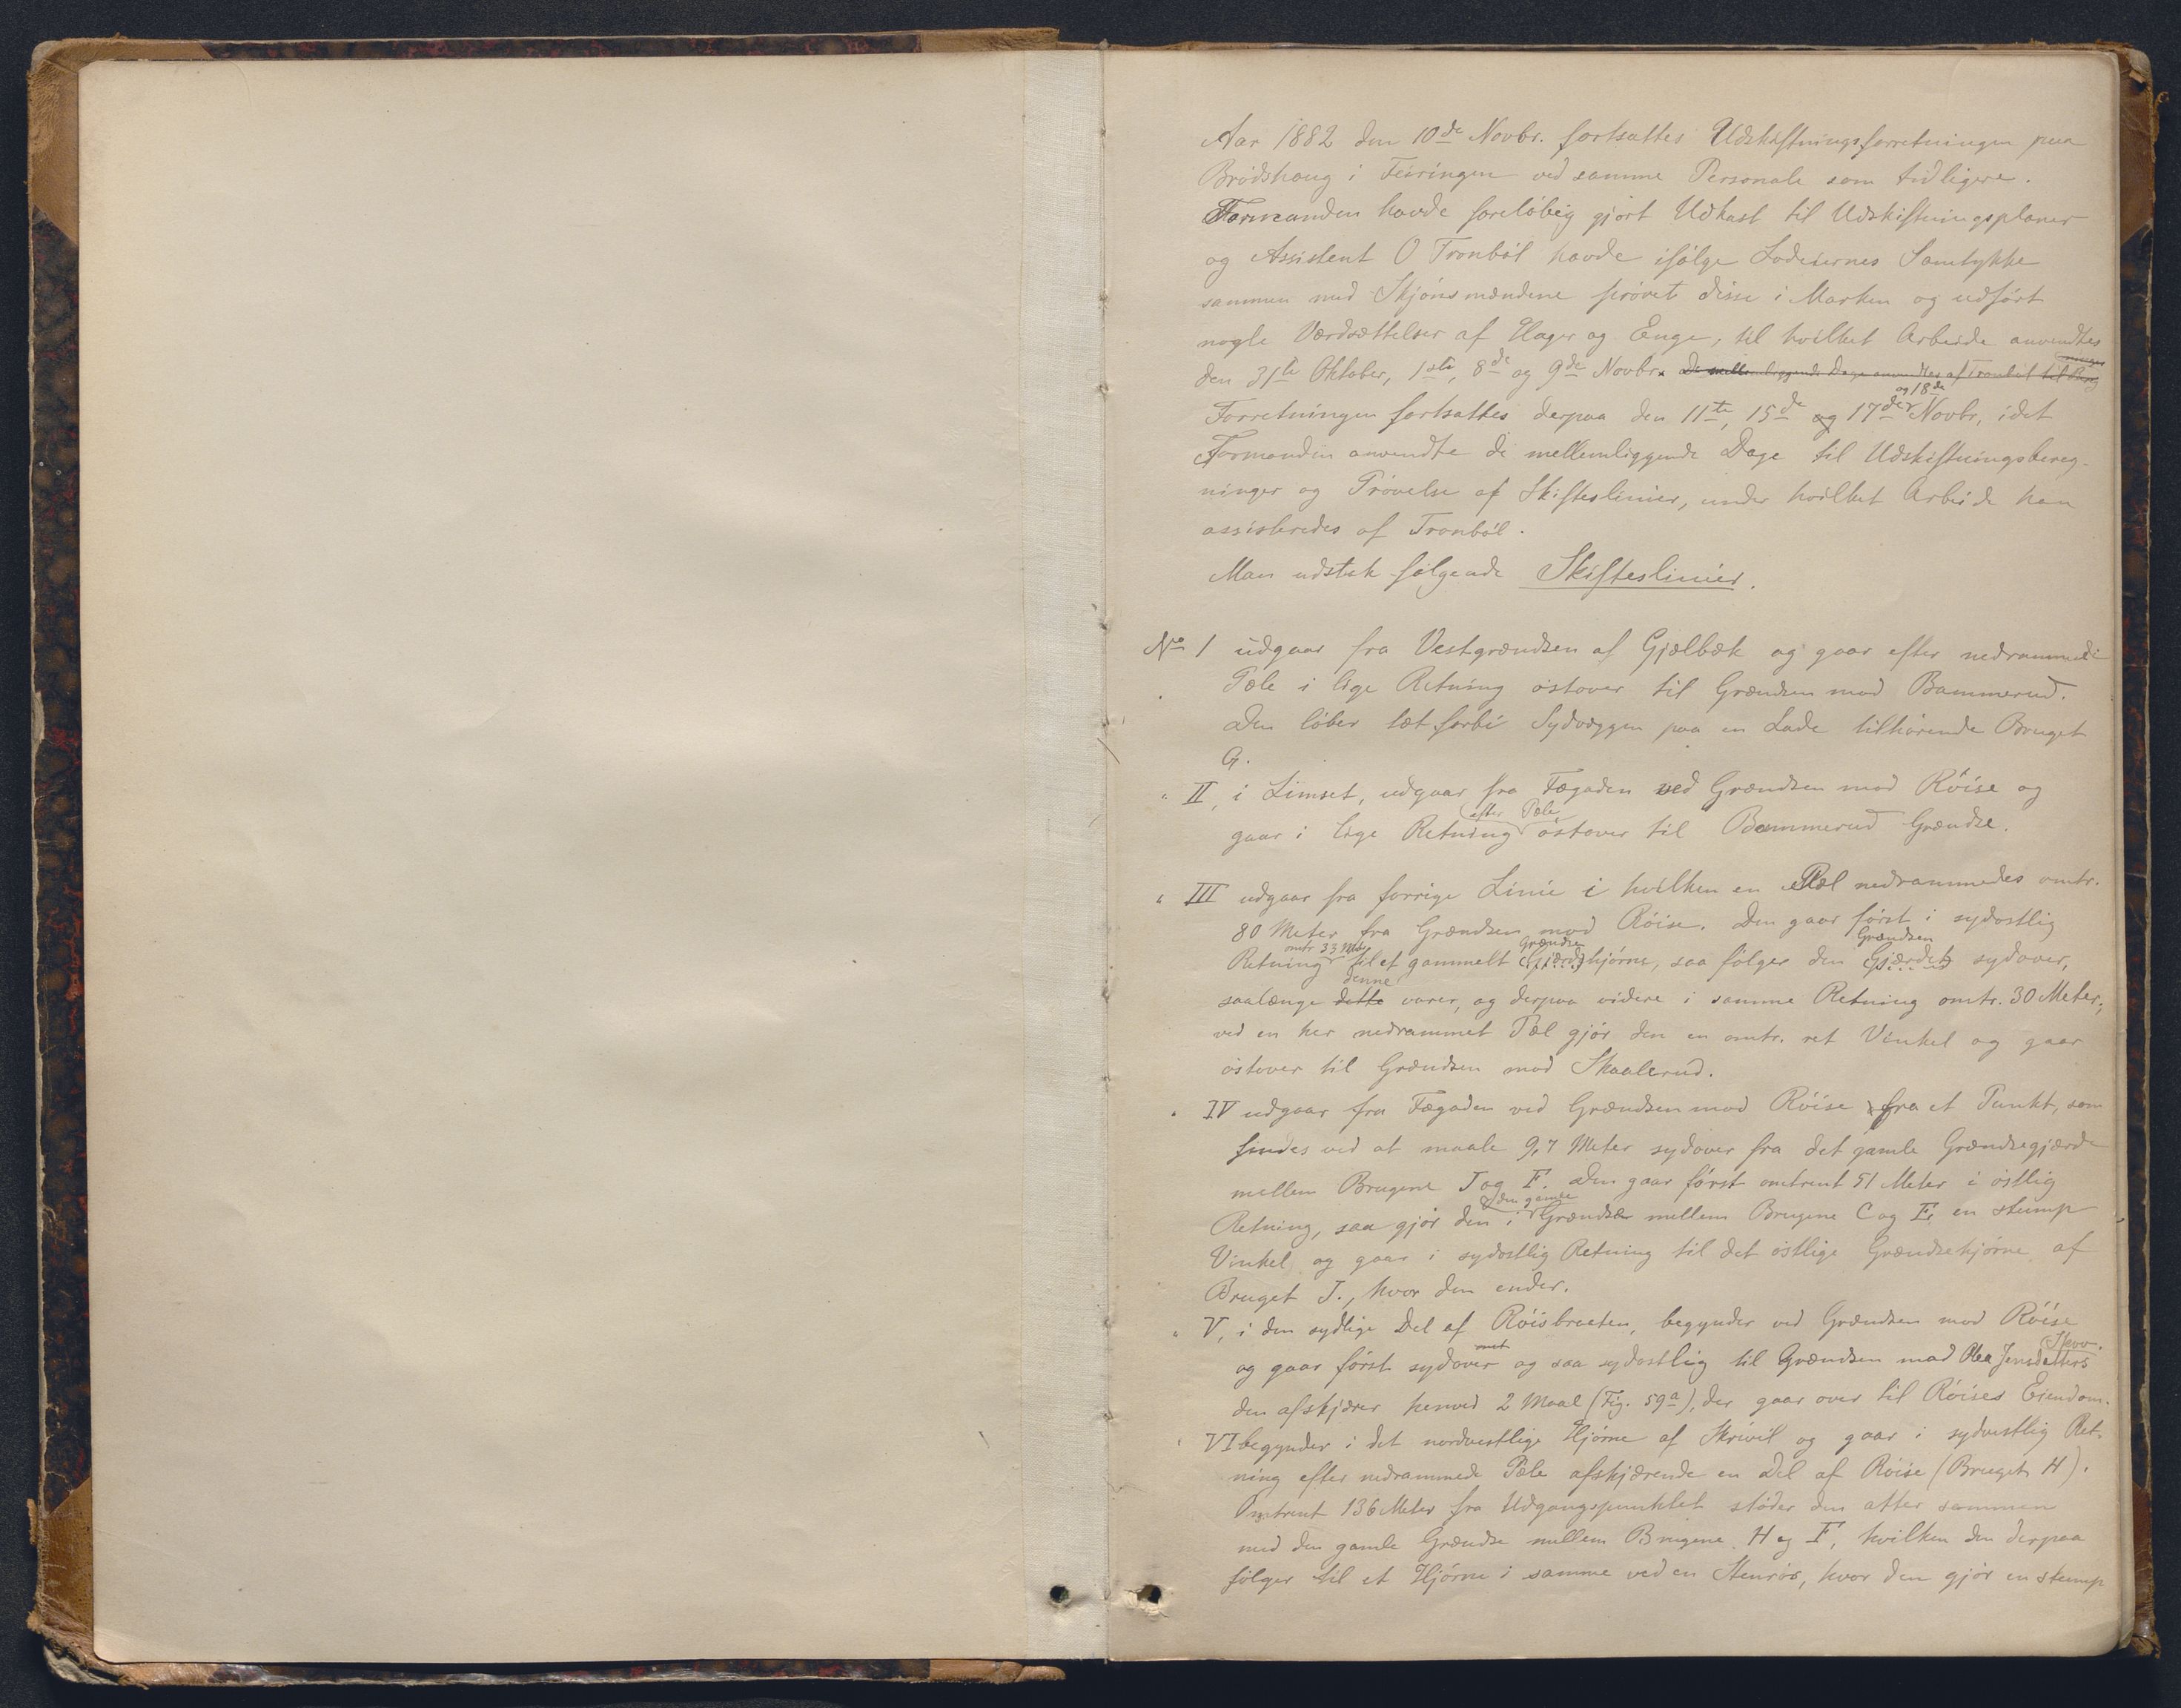 Aar 1882 den 10de Novbr. fortsattes Udskiftningsforretningen paa
Brødshaug i Feiringen ved samme Personale som tidligere.
Formanden havde foreløbig gjort Udkast til Udskiftningsplaner
og Assistent O Tronbøl havde ifølge Lodeiernes Samtykke
sammen med Skjønsmændene prøvet disse i Marken og udført
nogle Værdsættelser af Hager og Enge, til hvilket Arbeide anvendtes
den 31te Oktober, 1ste, 8de og 9de Novbr. De mellemliggende Dage anvendtes af Tronbøl til Bereg
og 18de
Forretningen fortsattes derpaa den 11te, 15de og 17de Novbr, idet
Formanden anvendte de mellemliggende Dage til Udskiftningsbereg-
ninger og Prøvelse af Skifteslinier, under hvilket Arbeide han
assisteredes af Tronbøl.
Man udstak følgende Skifteslinier.
No 1 udgaar fra Vestgrændsen af Gjælbæk og gaar efter nedrammede
Pæle i lige Retning østover til Grændsen mod Bammerud.
Den løber tæt forbi Sydvæggen paa en Lade tilhørende Bruget
G.
" II, i Limset, udgaar fra Fægaden ved Grændsen mod Røise og
efter Pæle
gaar i lige Retning østover til Bammerud Grændse.
" III udgaar fra forrige Linie i hvilken en Pæl nedrammedes omtr.
80 Meter fra Grændsen mod Røise. Den gaar først i sydostlig
omtr 33 Mtr Grændse Grændsen
Retning til et gammelt Gjærdehjørne, saa følger den Gjærdet sydover,
denne
saalænge dette varer, og derpaa videre i samme Retning omtr. 30 Meter;
ved en her nedrammet Pæl gjør den en omtr. ret Vinkel og gaar
østover til Grændsen mod Skaalerud.
" IV udgaar fra Fægaden ved Grændsen mod Røise fra et Punkt, som
findes ved at maale 9,7 Meter sydover fra det gamle Grændsegjærde
mellem Brugene J og F. Den gaar først omtrent 51 Meter i østlig
den gamle
Retning, saa gjør den i Grændse mellem Brugene C og F, en stump
Vinkel og gaar i sydostlig Retning til det østlige Grændsehjørne af
Bruget J., hvor den ender.
" V, i den sydlige Del af Røisbraaten, begynder ved Grændsen mod Røise
Skov.
og gaar først sydover og saa sydostlig til Grændsen mod Olea Jensdatters
den afskjærer henved 2 Maal (Fig. 59a), der gaar over til Røises Eiendom.
" VI begynder i det nordvestlige Hjørne af Skrivil og gaar i sydvestlig Ret-
ning efter nedrammede Pæle afskjærende en Del af Røise (Bruget H).
Omtrent 136 Meter fra Udgangspunktet støder den atter sammen
med den gamle Grændse mellem Brugene H og F, hvilken den derpaa
følger til et Hjørne i samme ved en Stenrøs, hvor den gjør en stump